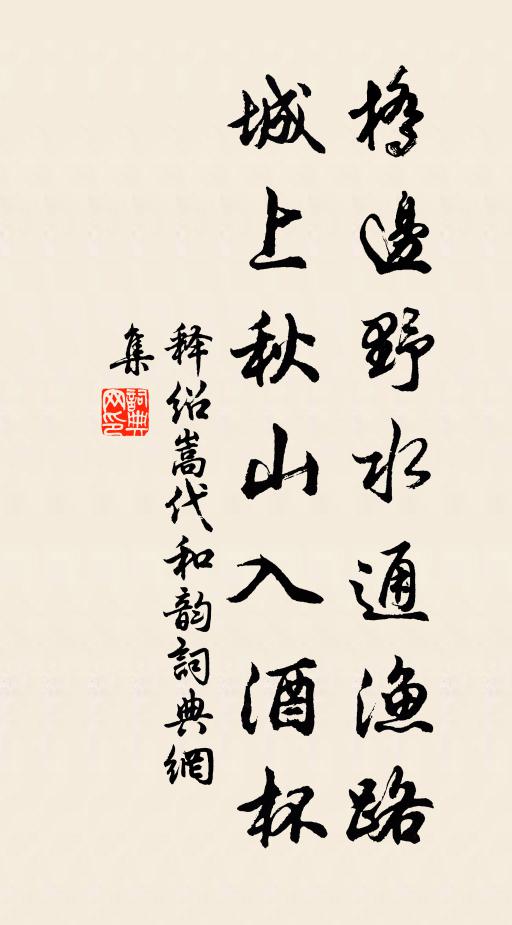 橋邊野水通漁路
城上秋山入酒杯
释绍嵩代和韵詞典網
集
詞典
网印